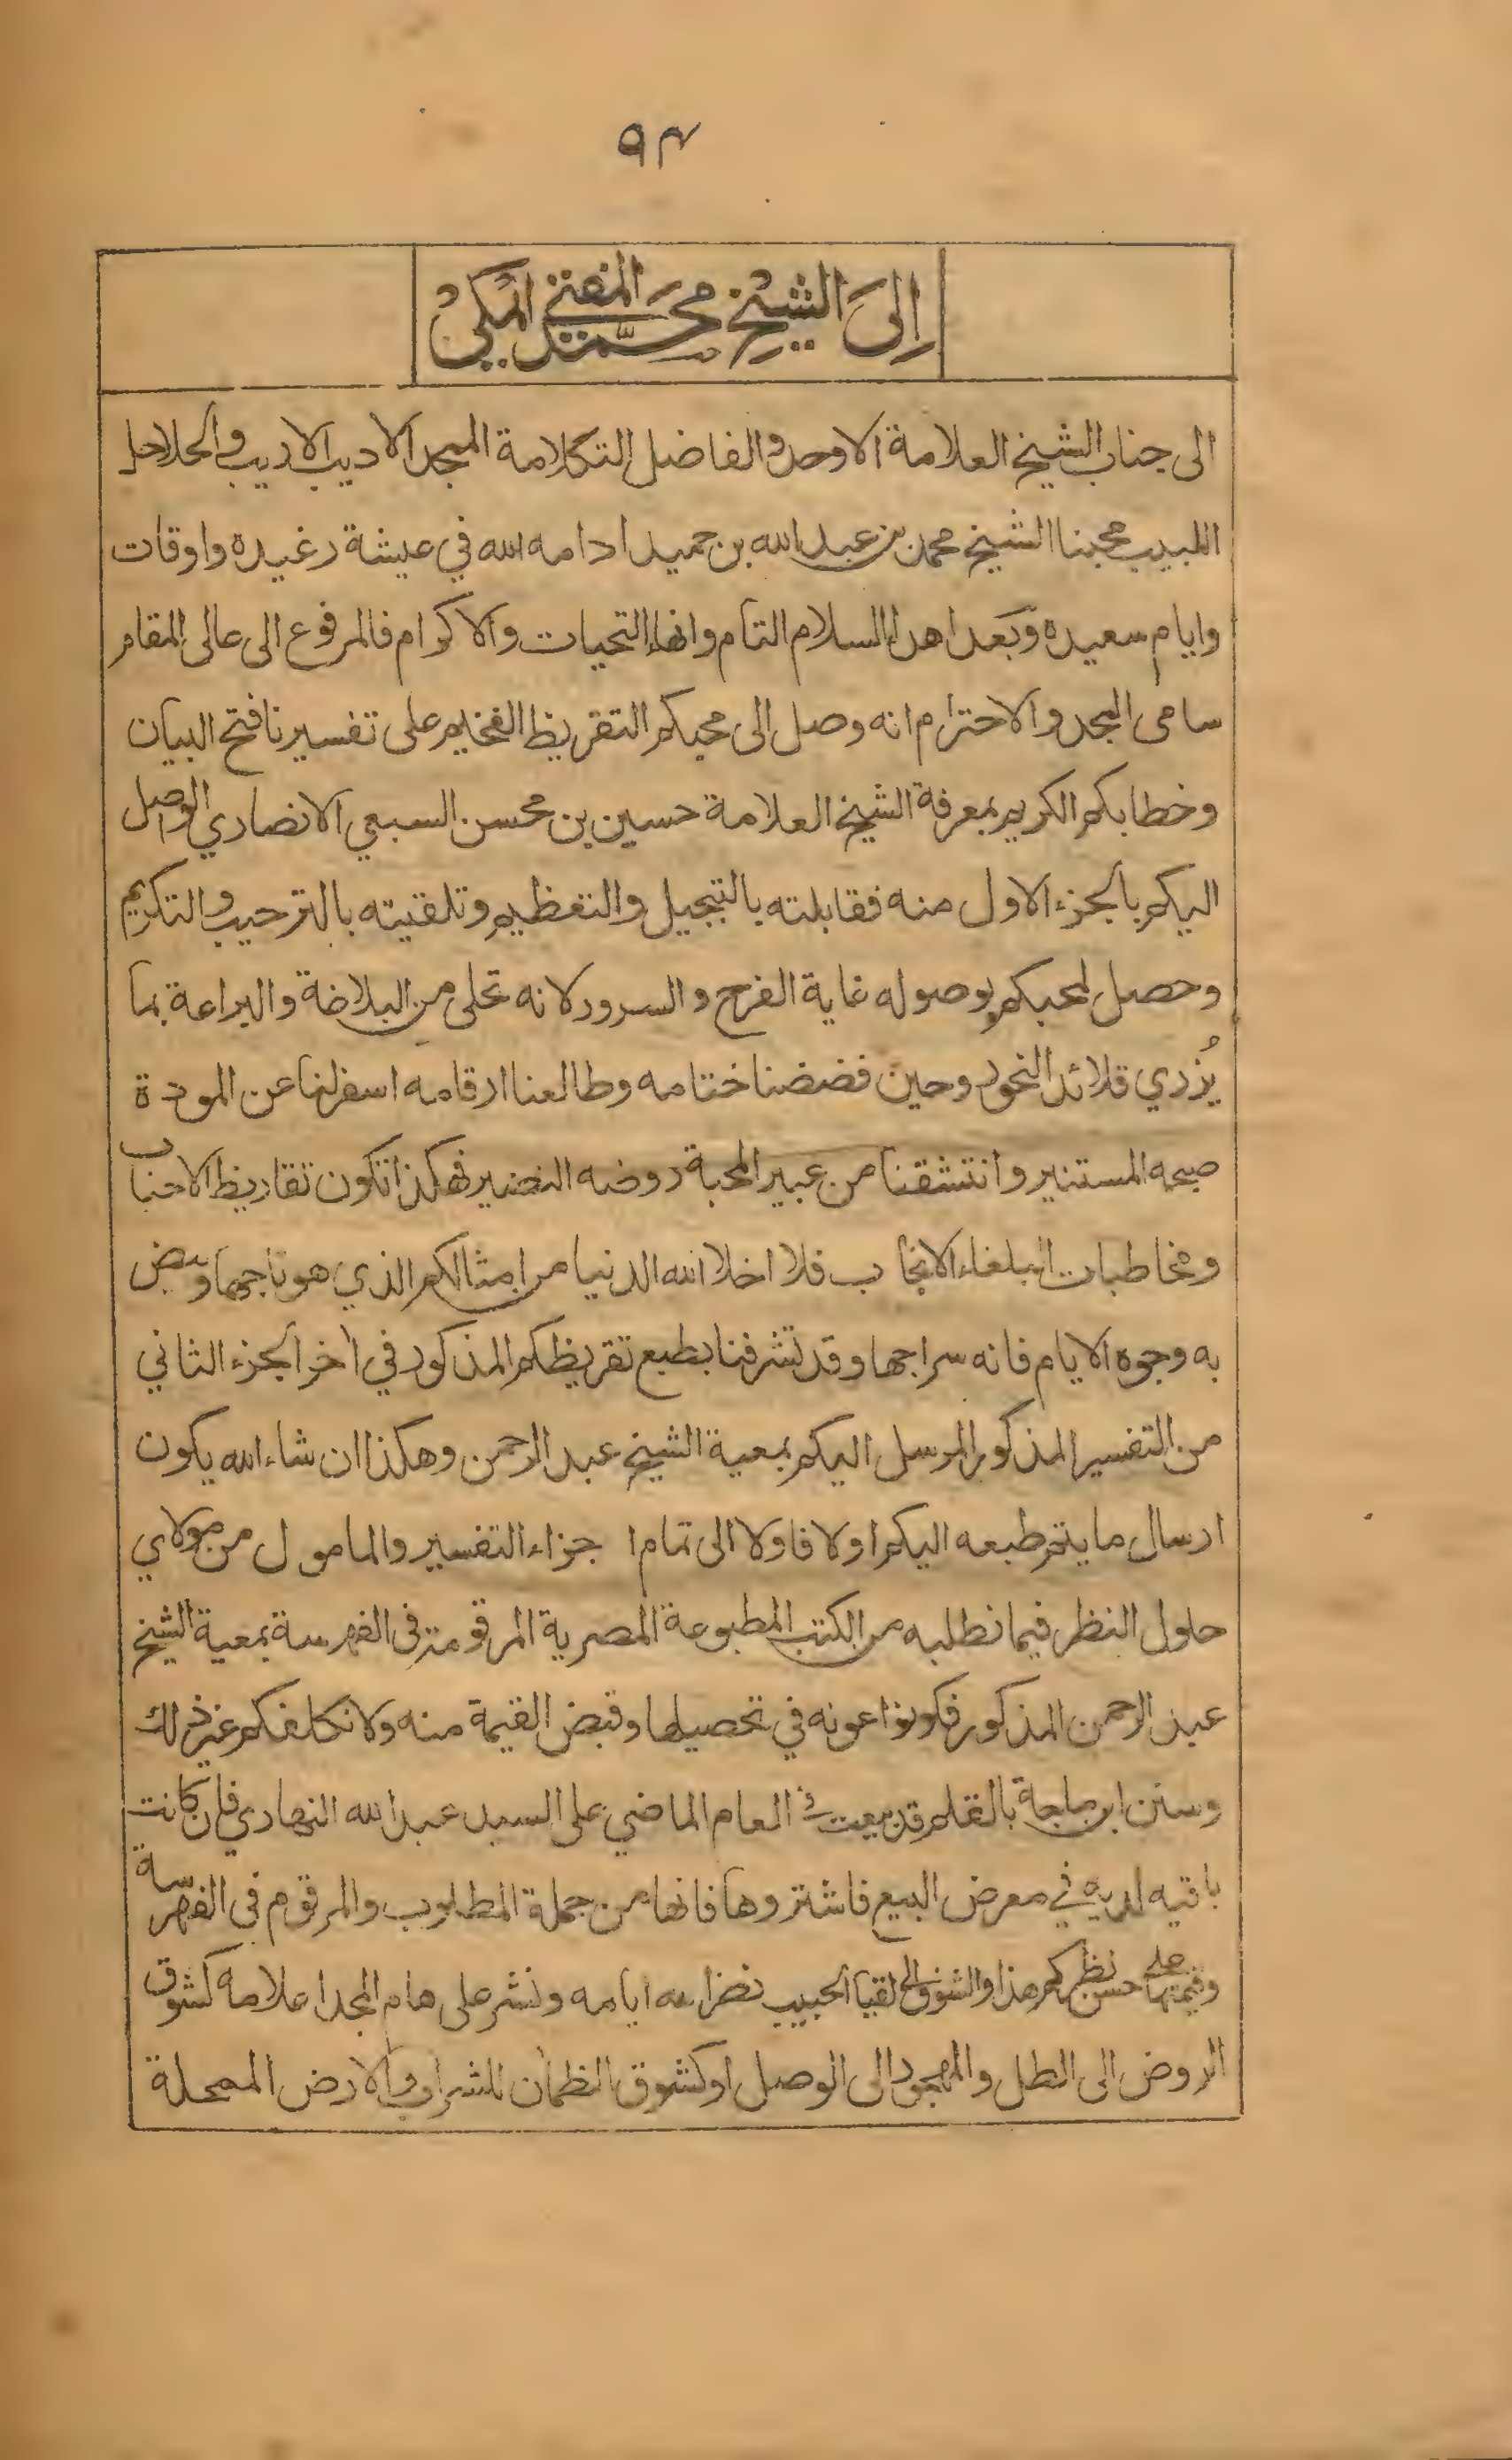 ٩٣
إِلىَ الشيخ محمَّد المفتي المكي
الى جناب الشيخ العلامة الاوحد والفاضل التكلامة المجد الاديب الاريب والحلاحل
اللبيب محبنا الشيخ محمد بن عبد الله بن حميد ادامه الله في عيشة رغيده واوقات
وايام سعيده وبعد اهداء السلام التام وانهاء التحيات والاكرام فالمرفوع الى عالى المقام
سامى المجد والاحترام انه وصل الى محبكم التقريظ الفخيم على تفسيرنا فتح البيان
وخطابكم الكريم بمعرفة الشيخ العلامة حسين بن محسن السبعي الانصاري الواصل
اليكم بالجزء الاول منه فقابلته بالتبجيل والتعظيم وتلقيته بالترحيب والتكريم
وحصل لمحبكم بوصوله غاية الفرح والسرور لانه تحلى من البلاغة والبراعة بما
يُزري قلائد النحور وحين فضضنا ختامه وطالعنا ارقامه اسفر لنا عن المودة
صبحه المستنير وانتشقنا من عبير المحبة روضه النضير فهكذا تكون تقاريظ الاحباب
ومخاطبات البلغاء الانجاب فلا اخلا الله الدنيا من امثالكم الذي هو تاجها وبيض
به وجوه الايام فانه سراجها وقد تشرفنا بطبع تقريظكم المذكور في آخر الجزء الثاني
من التفسير المذكور المرسل اليكم بمعية الشيخ عبد الرحمن وهكذا ان شاء الله يكون
ارسال ما يتم طبعه اليكم اولا فاولا الى تمام اجزاء التفسير والمامول من مولاي
حلول النظر فيما نطلبه من الكتب المطبوعة المصرية المرقومة فى الفهرسة بمعية الشيخ
عبد الرحمن المذكور فكونوا عونه في تحصيلها وقبض القيمة منه ولا نكلفكم غير ذلك
وسنن ابن ماجة بالقلم قد بيعت في العام الماضي على السيد عبد الله النهاري فان كانت
باقيه لديه في معرض البيع فاشتروها فانها من جملة المطلوب والمرقوم فى الفهرسة
وقيمتها على حسن نظركم هذا والشوق الى لقيا الحبيب نضر الله ايامه ونشر على هام المجد اعلامه كشوق
الروض الى الطل والمهجور الى الوصل او كشوق الظمآن للشراب والارض الممحلة